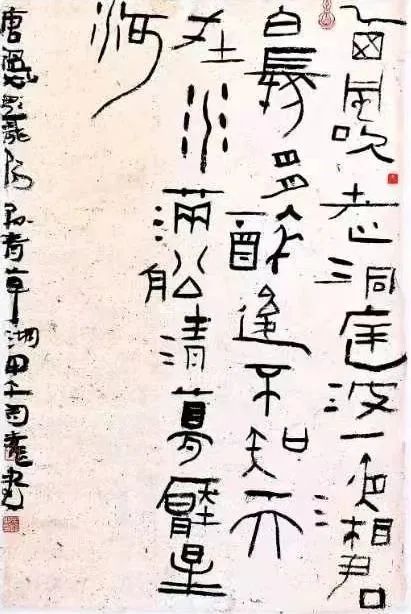 西風吹老洞庭波一夜湘君
白髮多醉後不知天
在水滿船清夢壓星
河
唐溫如題龍陽縣青草湖甲午